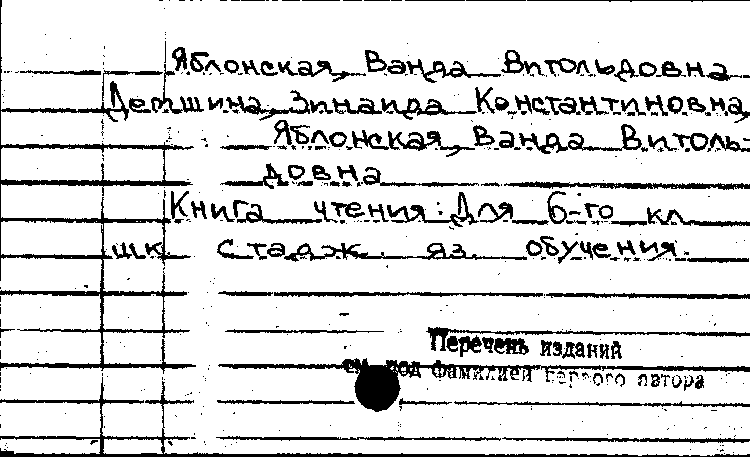 Яблонская, Ванда Витольдовна
Демшина, Зинаида Константиновна,
Яблонская, Ванда Витоль-
довна
Книга чтения: Для 6-го кл
шк с тадж. яз. обучения.
Перечень изданий
см. под фамилией первого автора